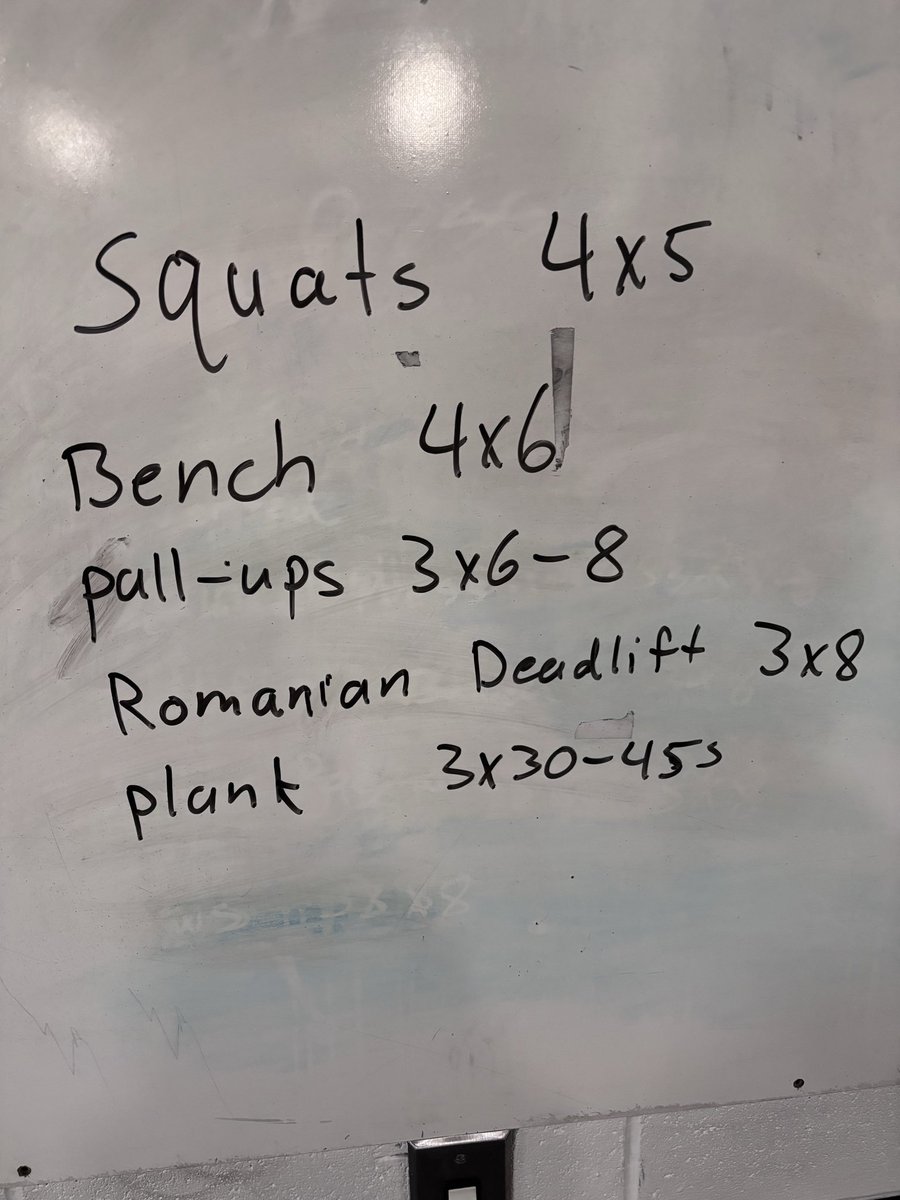 Squats 4x5
Bench 4x6
pull-ups 3x6-8
Romanian Deadlift 3x8
plank 3x30-45s